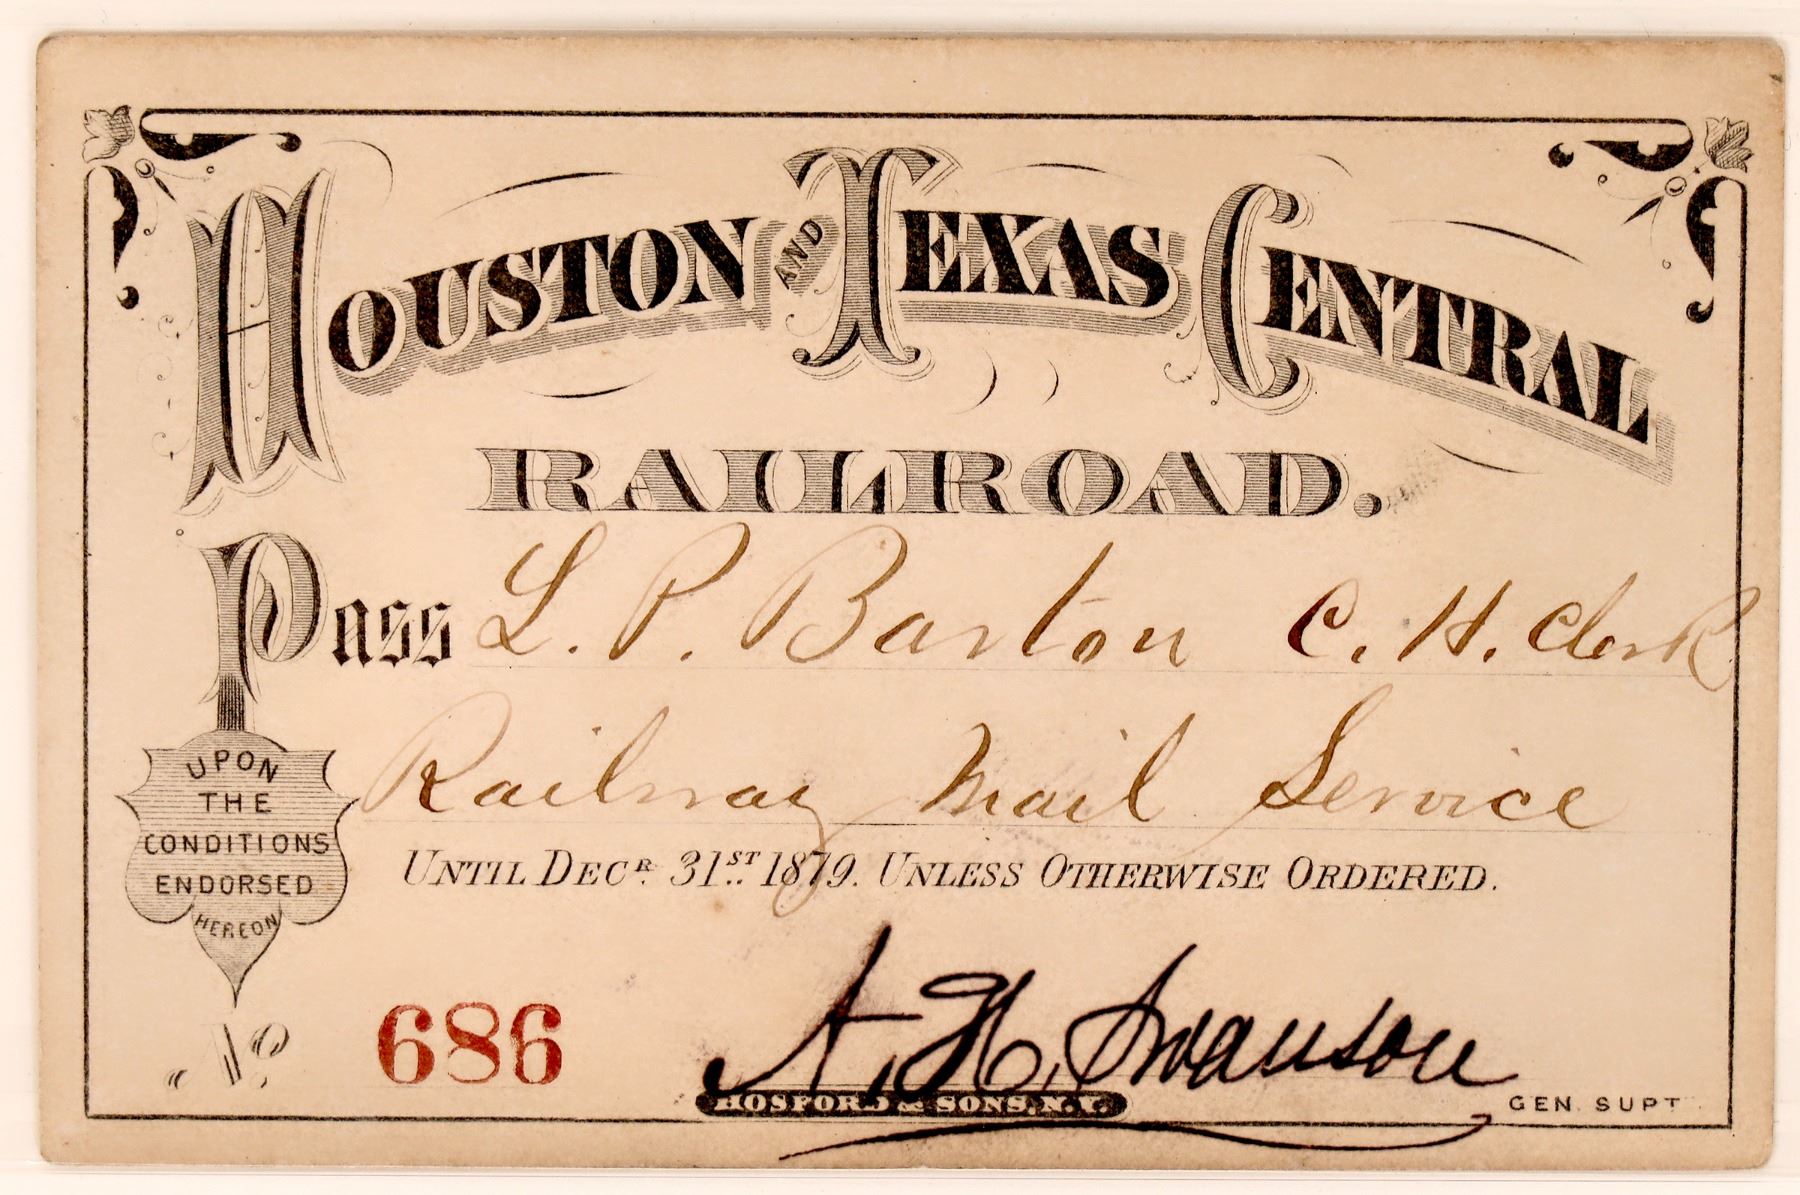 HOUSTON AND TEXAS CENTRAL
RAILROAD.
Pass L. P. Barton C. H. Clerk
Railway Mail Service
UPON
THE
CONDITIONS
ENDORSED
HEREON
UNTIL DECR. 31ST 1879. UNLESS OTHERWISE ORDERED.
No 686
A. H. Swanson
HOSFORD & SONS, N.Y.
GEN. SUPT.